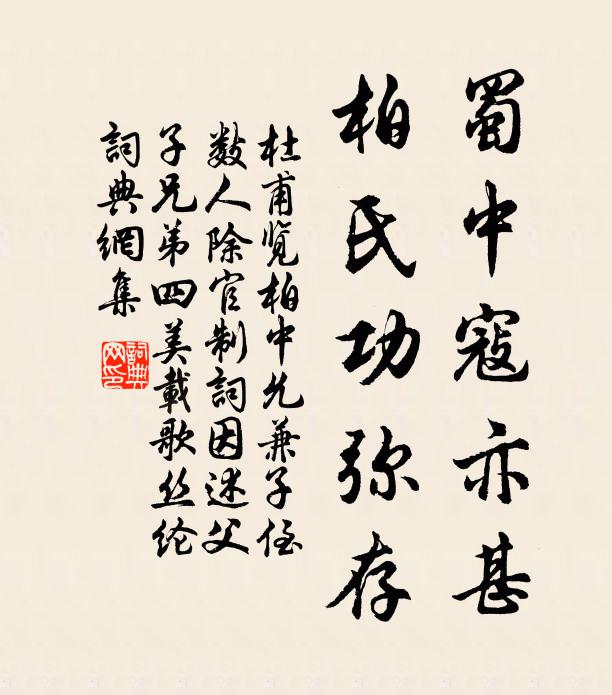 蜀中寇亦甚
柏氏功弥存
杜甫览柏中允兼子侄
数人除官制詞因述父
子兄弟四美載歌丝纶
詞典網集
詞典
网印